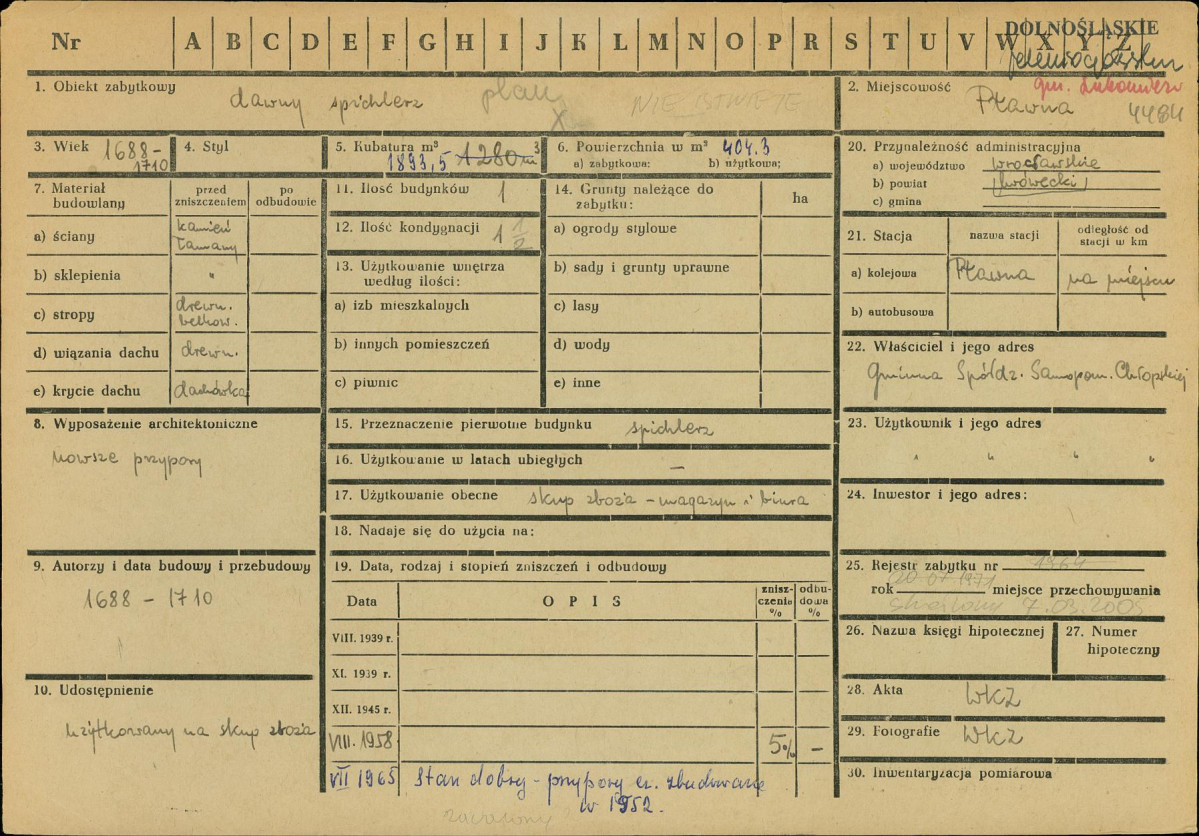 Nr A B C D E F G H I J K L M N O P R S T U V W X Y Z
DOLNOŚLĄSKIE
1. Obiekt zabytkowy dawny spichlerz plan
X NIE ISTNIEJE
2. Miejscowość Pławna
gm. Lubomierz
4484
3. Wiek 1688 - 1710
4. Styl
5. Kubatura m³ 1893,5 1280 m³
6. Powierzchnia w m² 404.3
a) zabytkowa: b) użytkowa:
7. Materiał budowlany
przed zniszczeniem
po odbudowie
a) ściany kamień łamany
b) sklepienia "
c) stropy drewn. belkow.
d) wiązania dachu drewn.
e) krycie dachu dachówka
8. Wyposażenie architektoniczne
nowsze przypory
9. Autorzy i data budowy i przebudowy
1688 - 1710
10. Udostępnienie
użytkowany na skup zboża
11. Ilość budynków 1
12. Ilość kondygnacji 1 1/2
13. Użytkowanie wnętrza według ilości:
a) izb mieszkalnych
b) innych pomieszczeń
c) piwnic
14. Grunty należące do zabytku:
ha
a) ogrody stylowe
b) sady i grunty uprawne
c) lasy
d) wody
e) inne
15. Przeznaczenie pierwotne budynku spichlerz
16. Użytkowanie w latach ubiegłych —
17. Użytkowanie obecne skup zboża - magazyn i biura
18. Nadaje się do użycia na:
19. Data, rodzaj i stopień zniszczeń i odbudowy
Data OPIS zniszczenie % odbudowa %
VIII. 1939 r.
XI. 1939 r.
XII. 1945 r.
VIII. 1958 5% -
VII 1965 Stan dobry - przypory zbudowane
w 1952.
20. Przynależność administracyjna
a) województwo wrocławskie
b) powiat (lwówecki)
c) gmina
21. Stacja nazwa stacji odległość od stacji w km
a) kolejowa Pławna na miejscu
b) autobusowa
22. Właściciel i jego adres
Gminna Spółdz. Samopom. Chłopskiej
23. Użytkownik i jego adres
" " " "
24. Inwestor i jego adres:
25. Rejestr zabytku nr 1964
rok 20 07 1971 miejsce przechowywania
skreślony 7.03.2005
26. Nazwa księgi hipotecznej
27. Numer hipoteczny
28. Akta WKZ
29. Fotografie WKZ
30. Inwentaryzacja pomiarowa